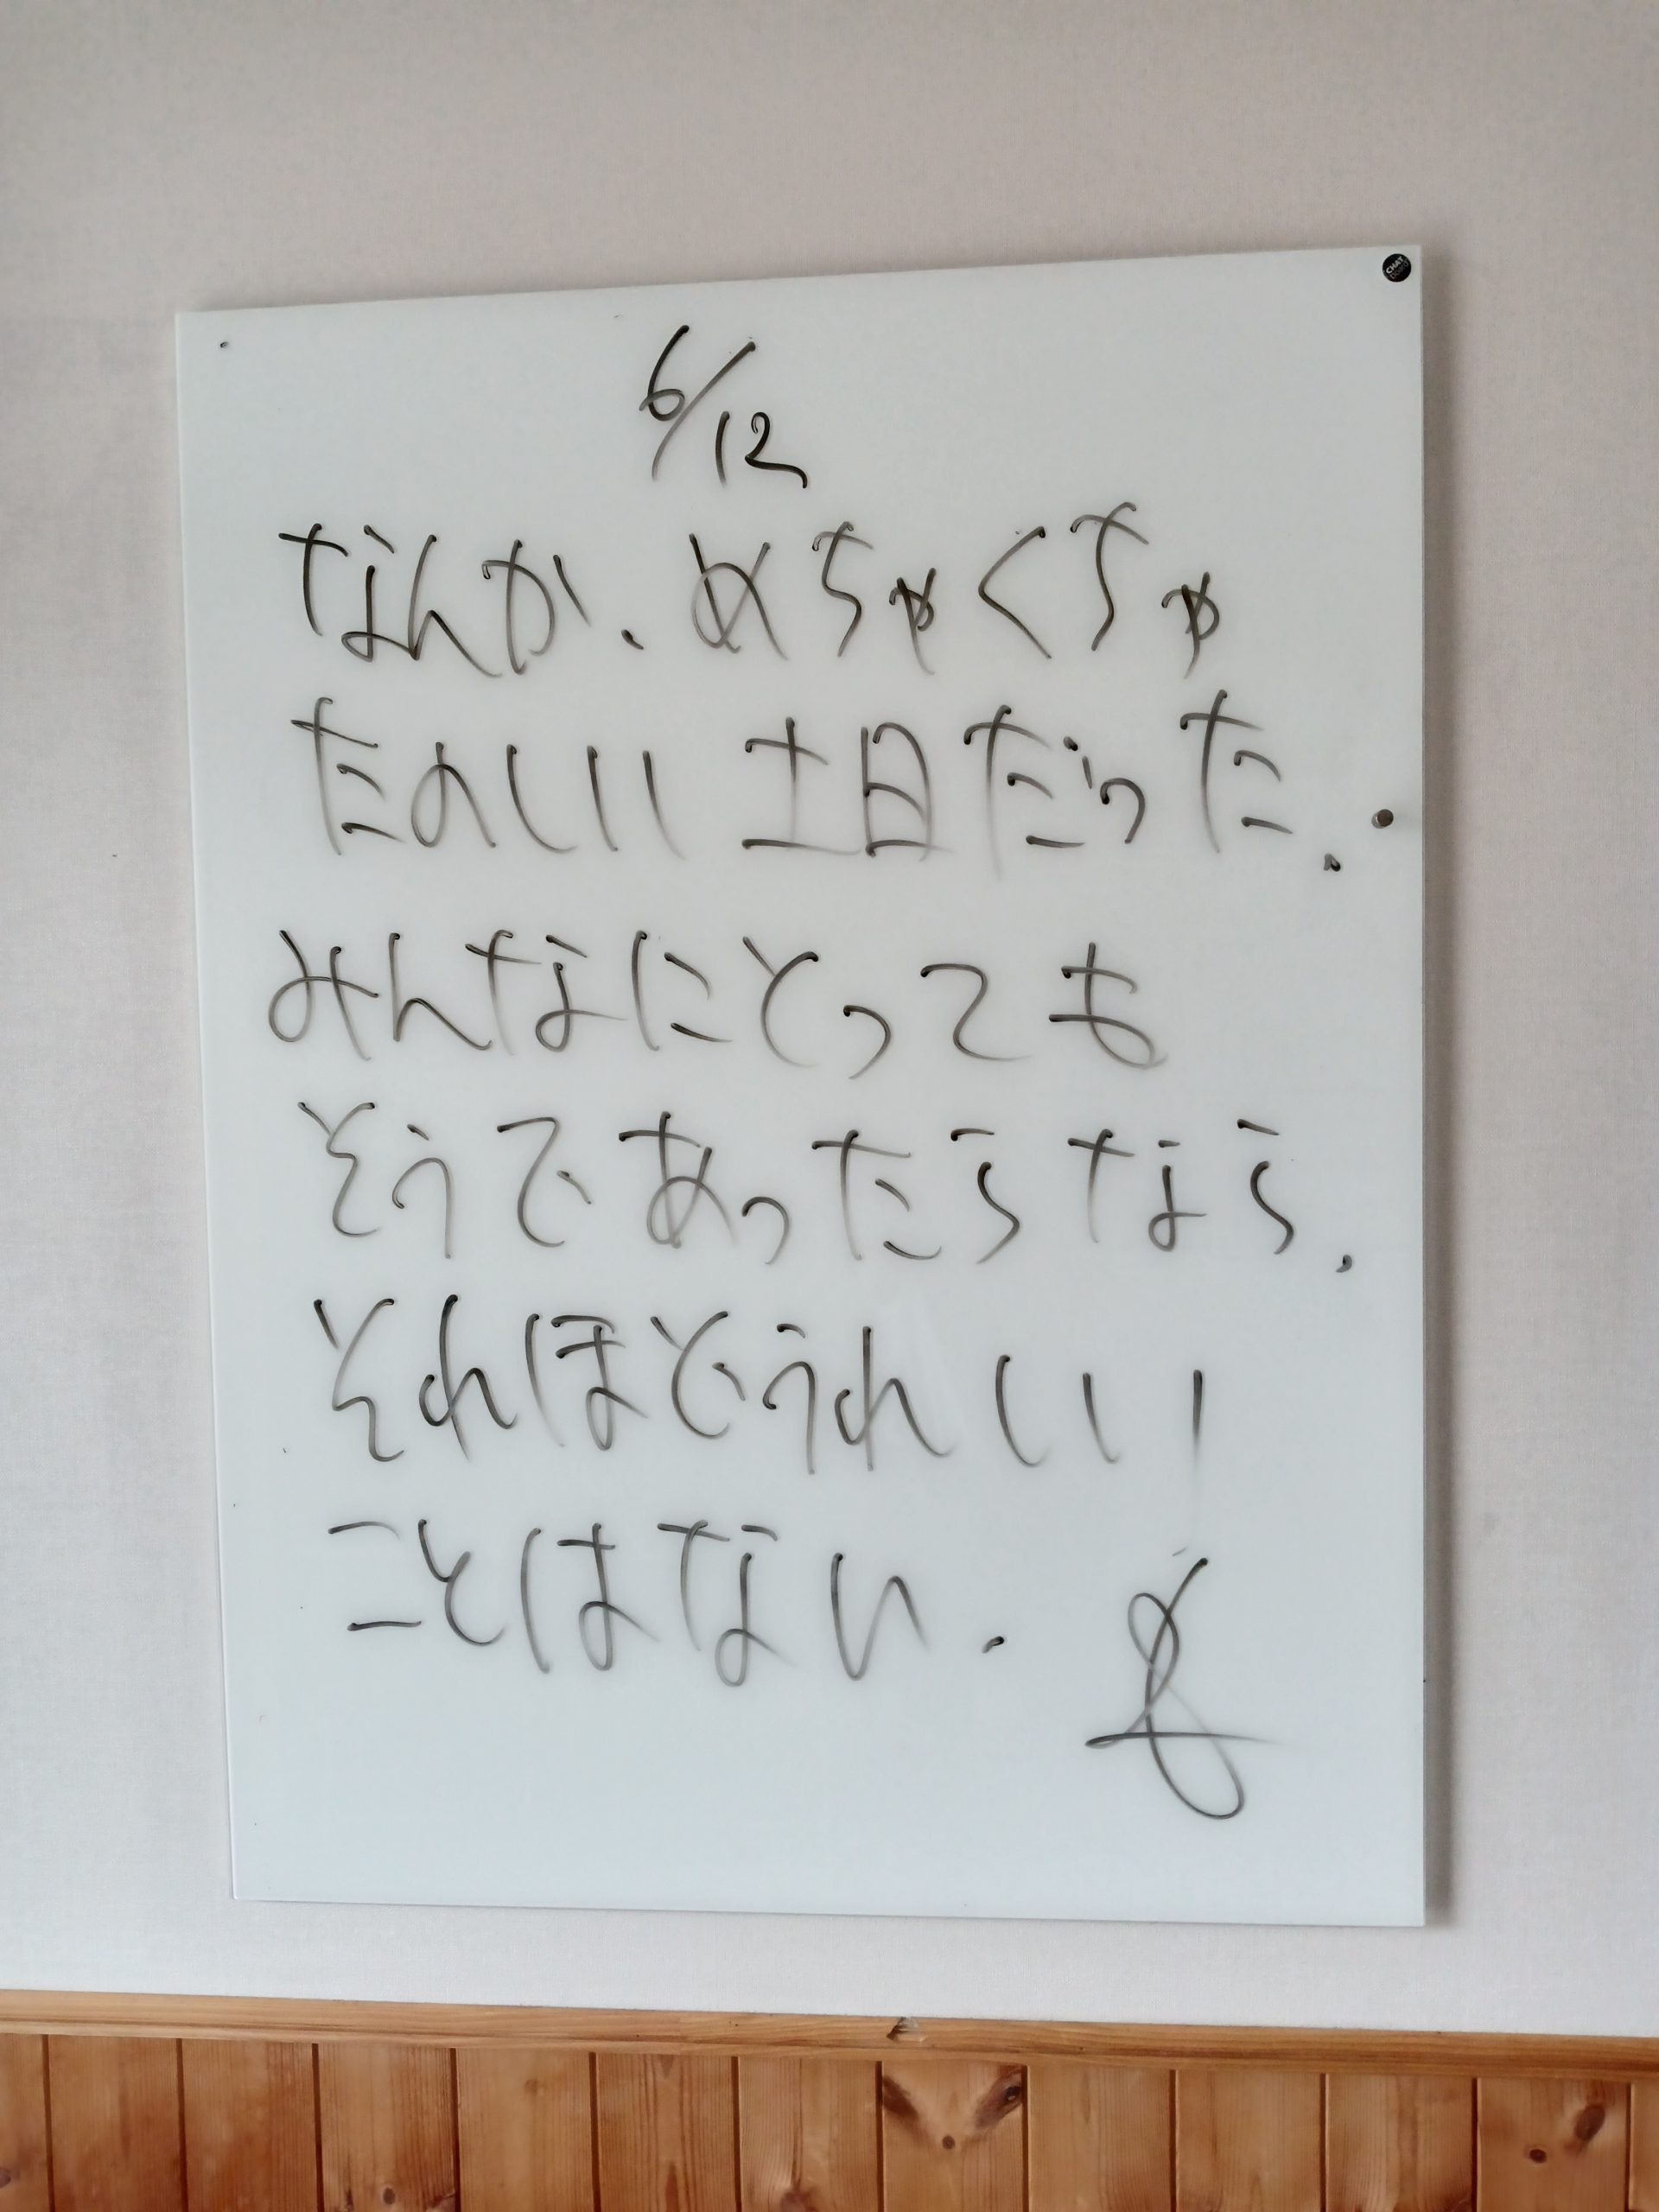 6/12
なんか、めちゃくちゃ
たのしい土日だった.
みんなにとっても
そうであったらなら、
それほどうれしい
ことはない.